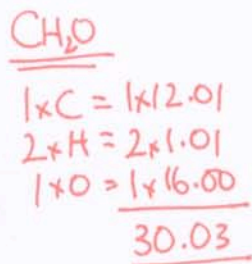 CH₂O
1×C = 1×12.01
2×H = 2×1.01
1×O = 1×16.00
30.03